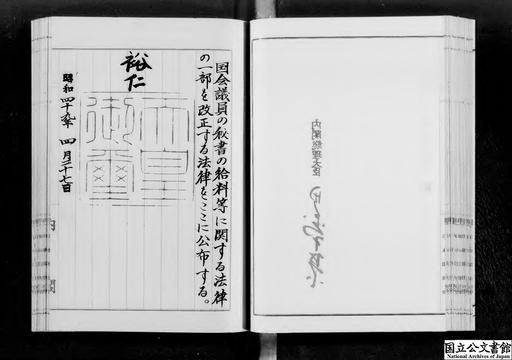 国会議員の秘書の給料等に関する法律
の一部を改正する法律をここに公布する。
裕仁
天皇御璽
昭和四十九年四月二十七日
内閣
内閣総理大臣
国立公文書館
National Archives of Japan